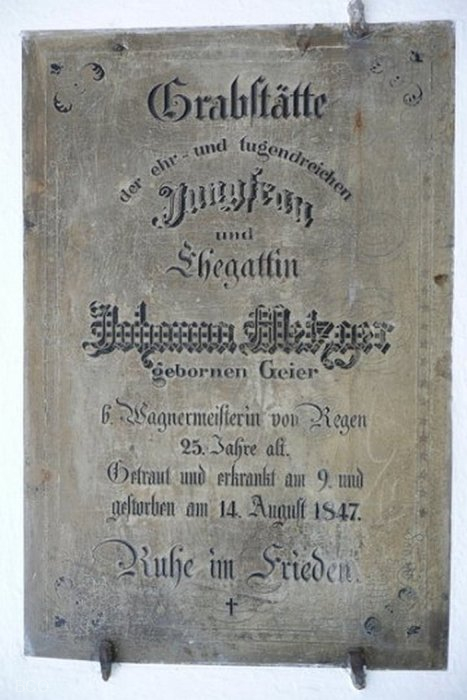 Grabstätte
der ehr- und tugendreichen
Jungfrau
und
Ehegattin
Johanna Metzger
gebornen Geier
b. Wagnermeisterin von Regen
25. Jahre alt.
Getraut und erkrankt am 9. und
gestorben am 14. August 1847.
Ruhe im Frieden.